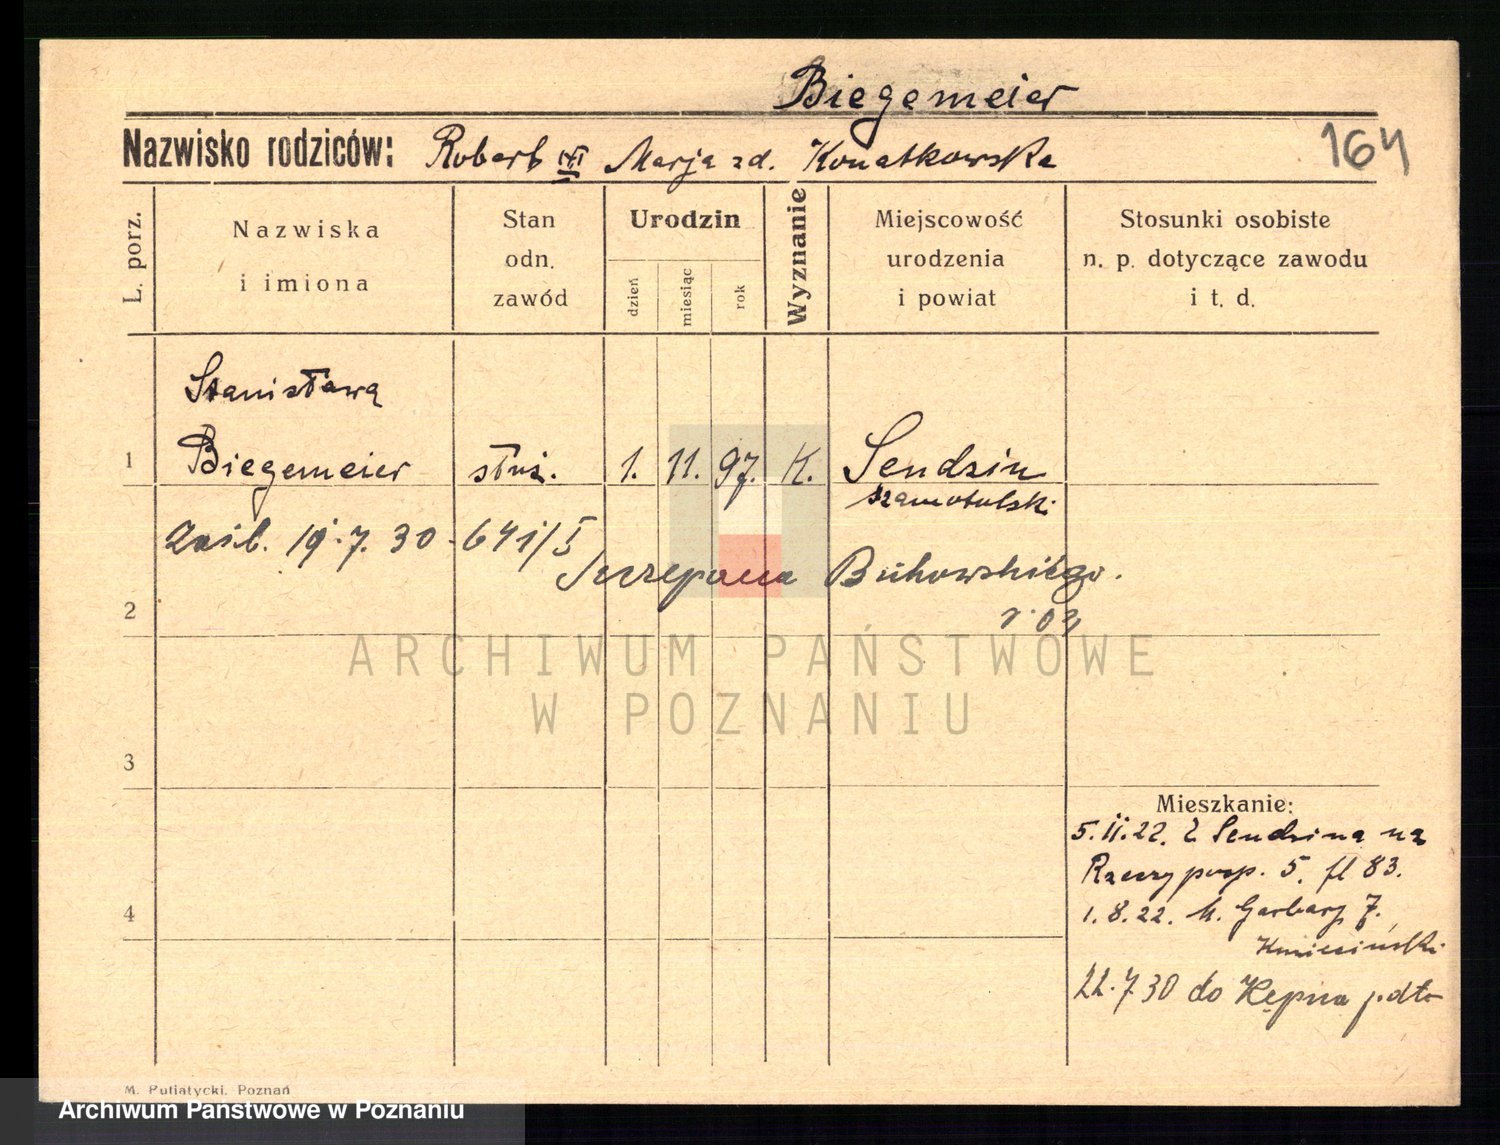 Biegemeier
Nazwisko rodziców: Robert Marja zd. Konatkowska
164
L. porz.
Nazwiska
i imiona
Stan
odn.
zawód
Urodzin
dzień
miesiąc
rok
Wyznanie
Miejscowość
urodzenia
i powiat
Stosunki osobiste
n. p. dotyczące zawodu
i t. d.
Stanisława
1 Biegemeier służ. 1. 11. 97. K. Sendzin
szamotulski
19.7.30 - 641/I
Szczepana Bukowskiego.
2
3
4
Mieszkanie:
5.11.22. z Sendzina na
Rzeczyposp. 5. fl 83.
1.8.22. u. Garbary 7.
Kmieciński
22.7.30 do Kępna
M. Putiatycki, Poznań
ARCHIWUM PAŃSTWOWE
W POZNANIU
Archiwum Państwowe w Poznaniu